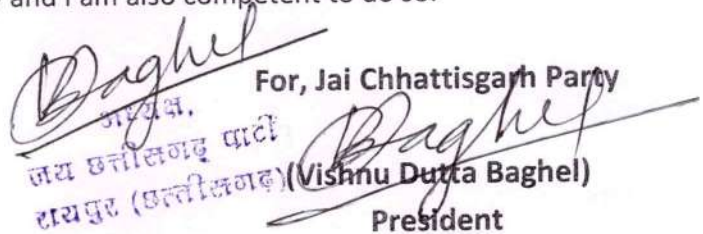 and I am also competent to do so.
Baghel
For, Jai Chhattisgarh Party
अध्यक्ष,
जय छत्तीसगढ़ पार्टी
रायपुर (छत्तीसगढ़)
Baghel
(Vishnu Dutta Baghel)
President